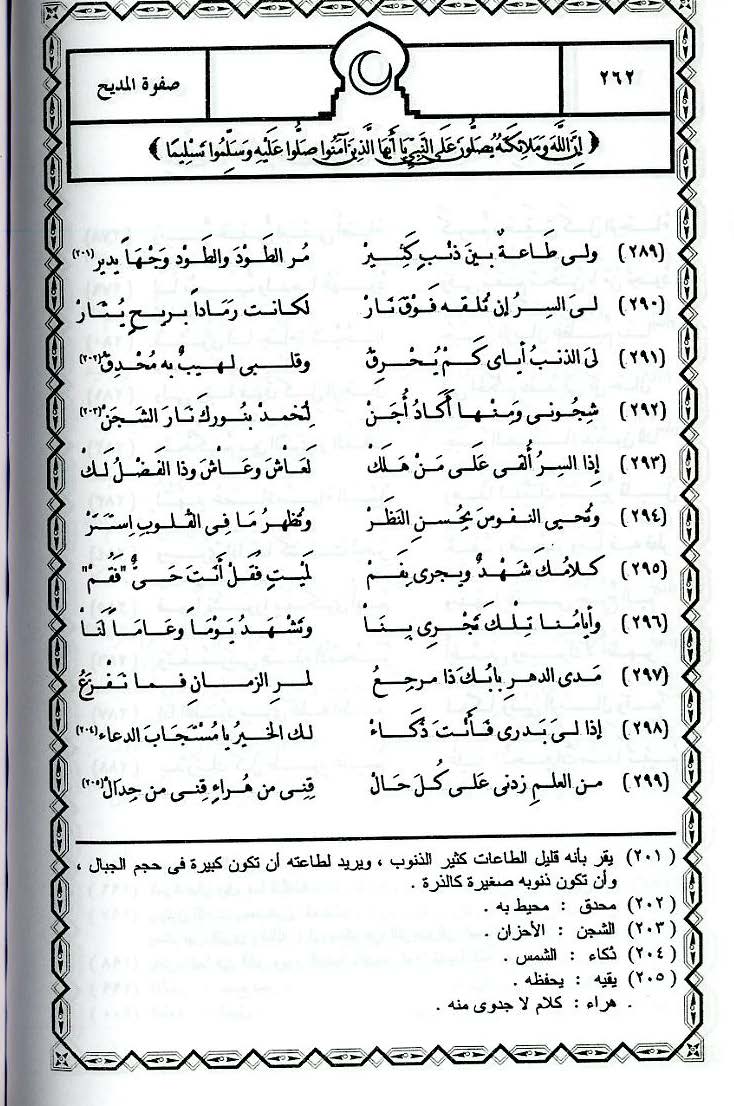 ٢٦٢
صفوة المديح
﴿ إِنَّ اللَّهَ وَمَلَائِكَتَهُ يُصَلُّونَ عَلَى النَّبِيِّ يَا أَيُّهَا الَّذِينَ آمَنُوا صَلُّوا عَلَيْهِ وَسَلِّمُوا تَسْلِيمًا ﴾
(٢٨٩) ولى طَاعةٌ بينَ ذنْبٍ كَثِير مُر الطَوْدَ والطَوْد وَجْهَاً يدير (٢٠١)
(٢٩٠) لىَ السِرُ إن تُلقه فَوْقَ نَارْ لكانت رَمَاداً بريحٍ يُثَارْ
(٢٩١) لىَ الذنبُ أياى كَمْ يُحْرِقُ وقلبى لهيبٌ به مُحْدِقُ (٢٠٢)
(٢٩٢) شِجُونى وَمِنْها أَكَادُ أُجَنْ لِتَخمدْ بنُوركَ نَارَ الشجَنْ (٢٠٣)
(٢٩٣) إذا السِرُ أُلقى عَلَى مَنْ هَلَكْ لَعَاشَ وعَاشَ وذا الفَضْلُ لَكْ
(٢٩٤) وتُحيى النفوسَ بحُسنِ النَظَرْ وتُظهرُ مَا فى القُلوبِ اِستَتَرْ
(٢٩٥) كلامُكَ شَهْدٌ ويجرى بِفَمْ لميْتٍ فَقلْ أَنْتَ حَىٌّ "فَقُمْ"
(٢٩٦) وأيامُنا تِلْكَ تَجْرِى بِنَا وتَشْهَدُ يَوْمَاً وعَامَاً لَنَا
(٢٩٧) مَدى الدهرِ بابُكَ ذا مرجعُ لمرِ الزمانِ فما نَفْزَعُ
(٢٩٨) إذا لىَ بَدرى فَأَنْتَ ذُكَاءْ لك الخيرُ يا مُسْتَجَابَ الدعاء (٢٠٤)
(٢٩٩) من العلمِ زدنى عَلى كُلَ حَالْ قِنِى من هُراءٍ قِنِى من جِدَالْ (٢٠٥)
(٢٠١) يقر بأنه قليل الطاعات كثير الذنوب ، ويريد لطاعته أن تكون كبيرة فى حجم الجبال ،
وأن تكون ذنوبه صغيرة كالذرة .
(٢٠٢) محدق : محيط به .
(٢٠٣) الشجن : الأحزان .
(٢٠٤) ذكاء : الشمس .
(٢٠٥) يقيه : يحفظه .
. هراء : كلام لا جدوى منه .